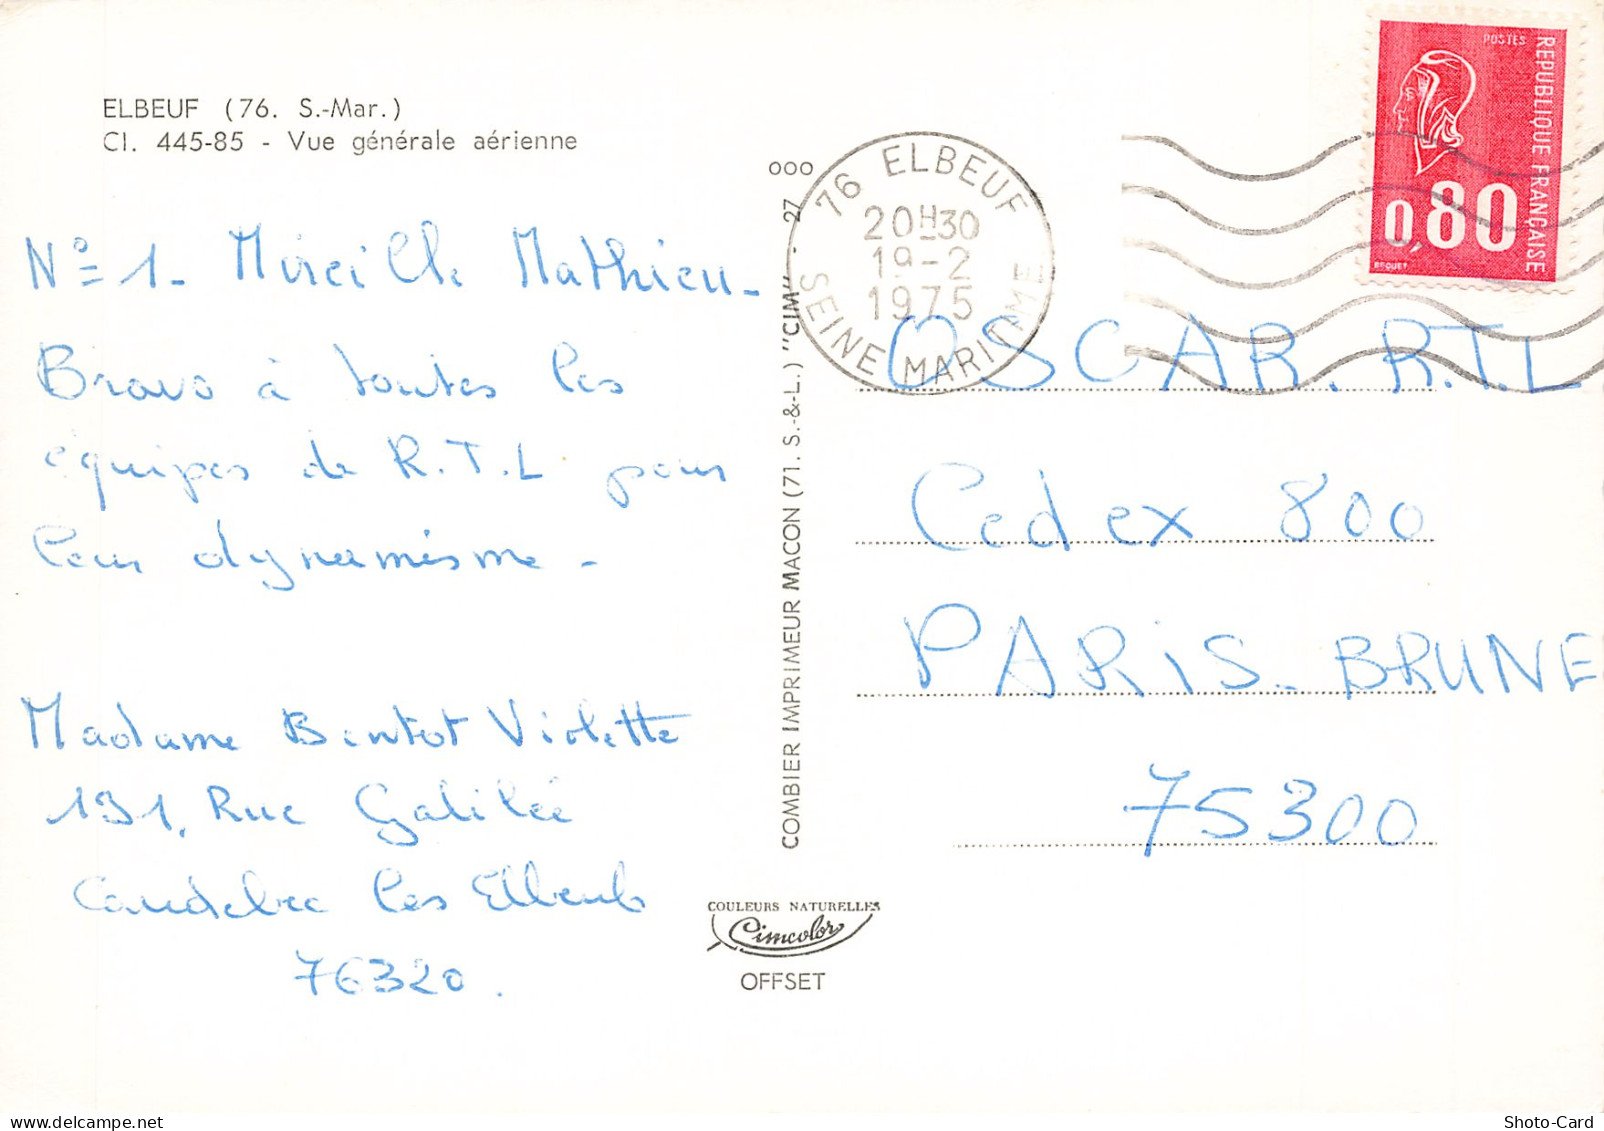 ELBEUF (76. S.-Mar.)
CI. 445-85 - Vue générale aérienne
N° = 1 - Mireille Mathieu -
Bravo à toutes les
équipes de R.T.L pour
leur dynamisme -
Madame Bentot Violette
191, Rue Galilée
Caudebec les Elbeuf
76320.
COMBIER IMPRIMEUR MACON (71. S.-&-L.) "CIM" - 27
000
76 ELBEUF
20H30
19-2
1975
SEINE MARITIME
POSTES
REPUBLIQUE FRANÇAISE
0,80
BEQUET
OSCAR. R.T.L
Cedex 800
PARIS - BRUNE
75300
COULEURS NATURELLES
Cimcolor
OFFSET
Shoto-Card